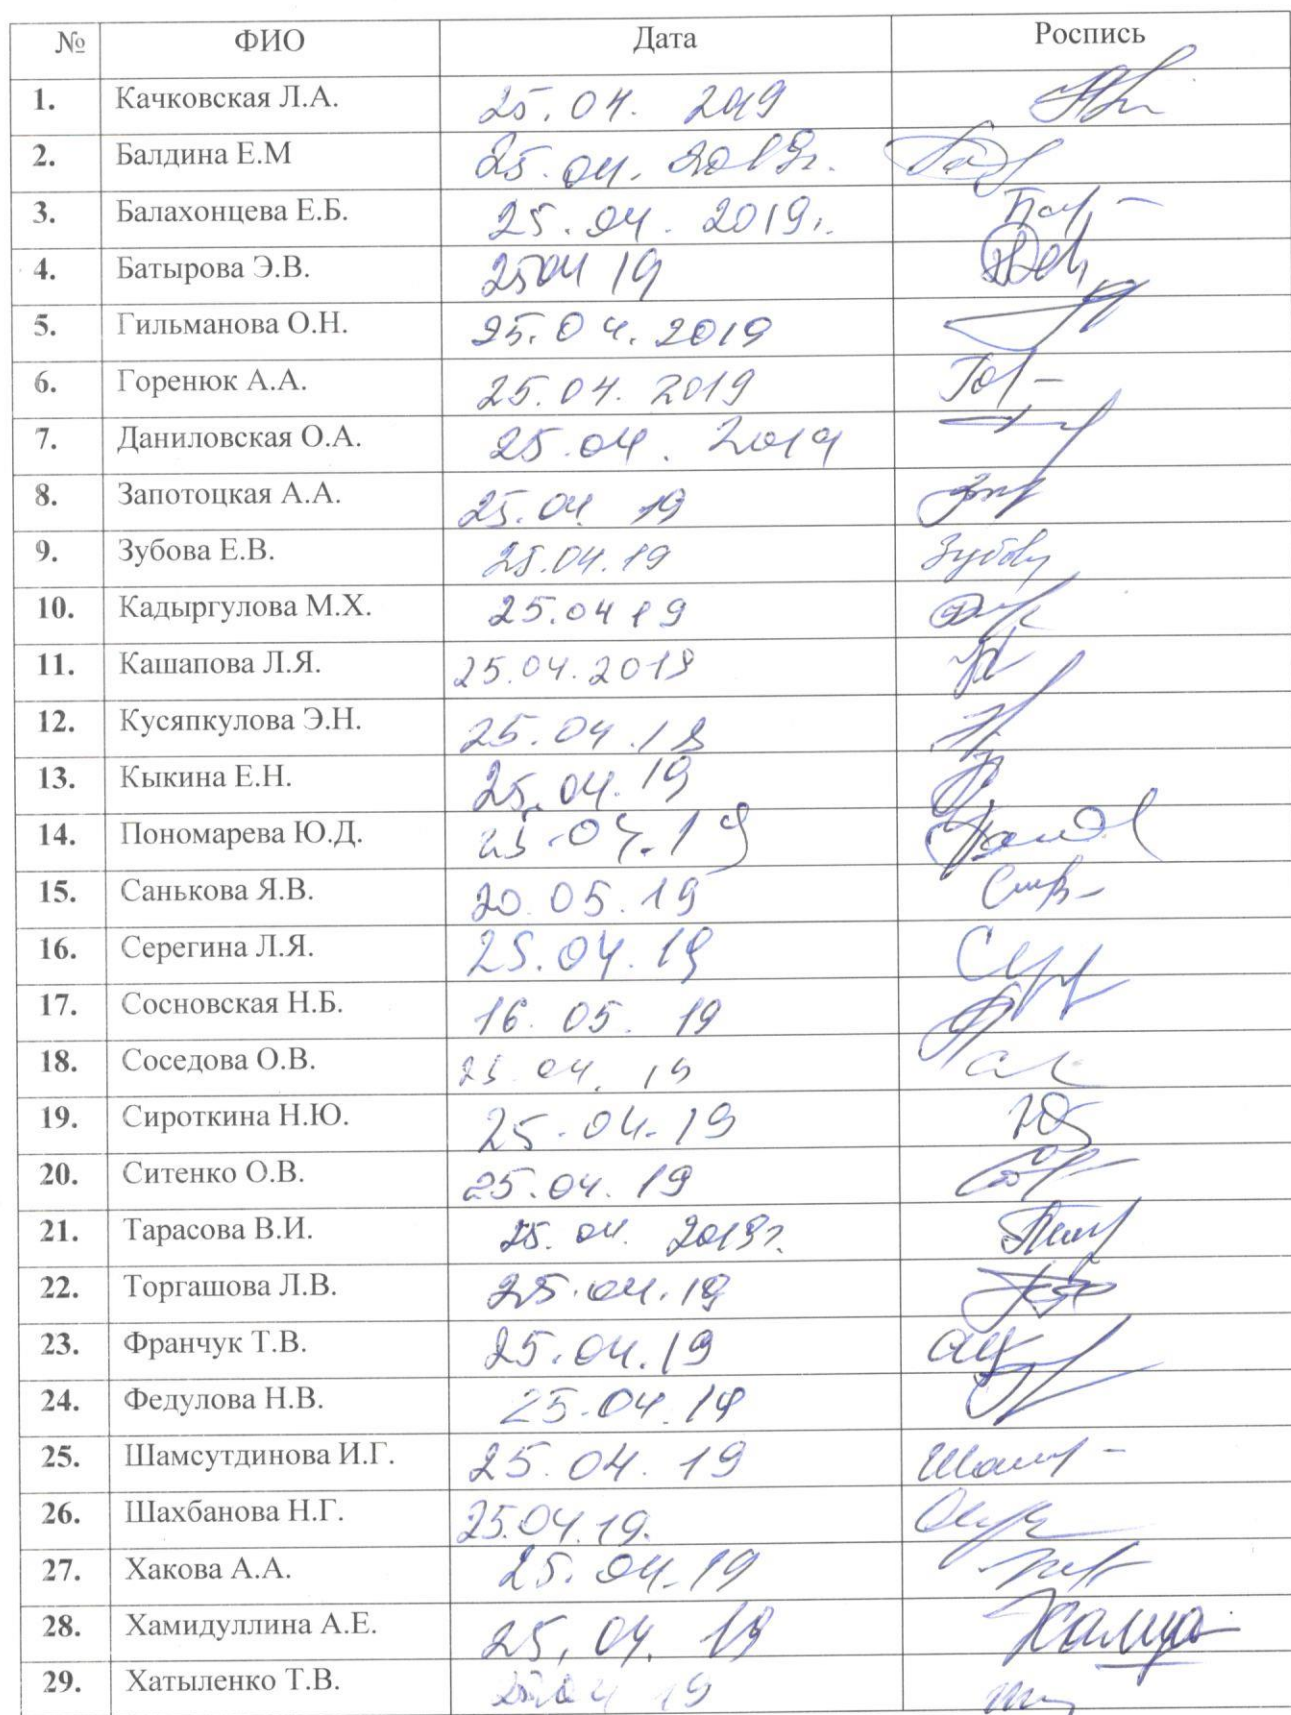 № ФИО Дата Роспись
1. Качковская Л.А. 25.04. 2019
2. Балдина Е.М 25.04. 2019г.
3. Балахонцева Е.Б. 25.04. 2019г. Бал
4. Батырова Э.В. 250419
5. Гильманова О.Н. 25.04.2019
6. Горенюк А.А. 25.04.2019
7. Даниловская О.А. 25.04. 2019
8. Запотоцкая А.А. 25.04 19
9. Зубова Е.В. 25.04.19 Зубову
10. Кадыргулова М.Х. 25.04 19
11. Кашапова Л.Я. 25.04.2019
12. Кусяпкулова Э.Н. 25.04.18
13. Кыкина Е.Н. 25.04.19
14. Пономарева Ю.Д. 25.04.19
15. Санькова Я.В. 20.05.19
16. Серегина Л.Я. 25.04.19
17. Сосновская Н.Б. 16.05.19
18. Соседова О.В. 25.04.19
19. Сироткина Н.Ю. 25.04.19
20. Ситенко О.В. 25.04.19
21. Тарасова В.И. 25.04. 2019г.
22. Торгашова Л.В. 25.04.19
23. Франчук Т.В. 25.04.19
24. Федулова Н.В. 25.04.19
25. Шамсутдинова И.Г. 25.04.19
26. Шахбанова Н.Г. 25.04.19.
27. Хакова А.А. 25.04.19
28. Хамидуллина А.Е. 25.04.19 Хамид
29. Хатыленко Т.В. 25.04 19